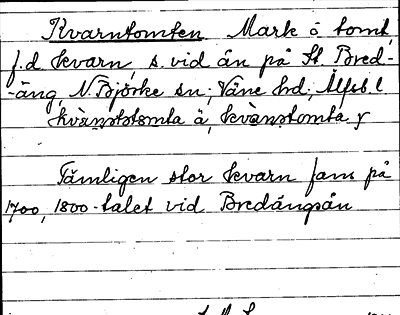 Kvarntomten Mark o tomt
f.d. kvarn, s. vid ån på St. Bred-
-äng, N. Björke sn; Väne hd; Älfsb. l
kvànstomta ä, kvànstomta y
Tämligen stor kvarn fans på
1700, 1800-talet vid Bredängsån